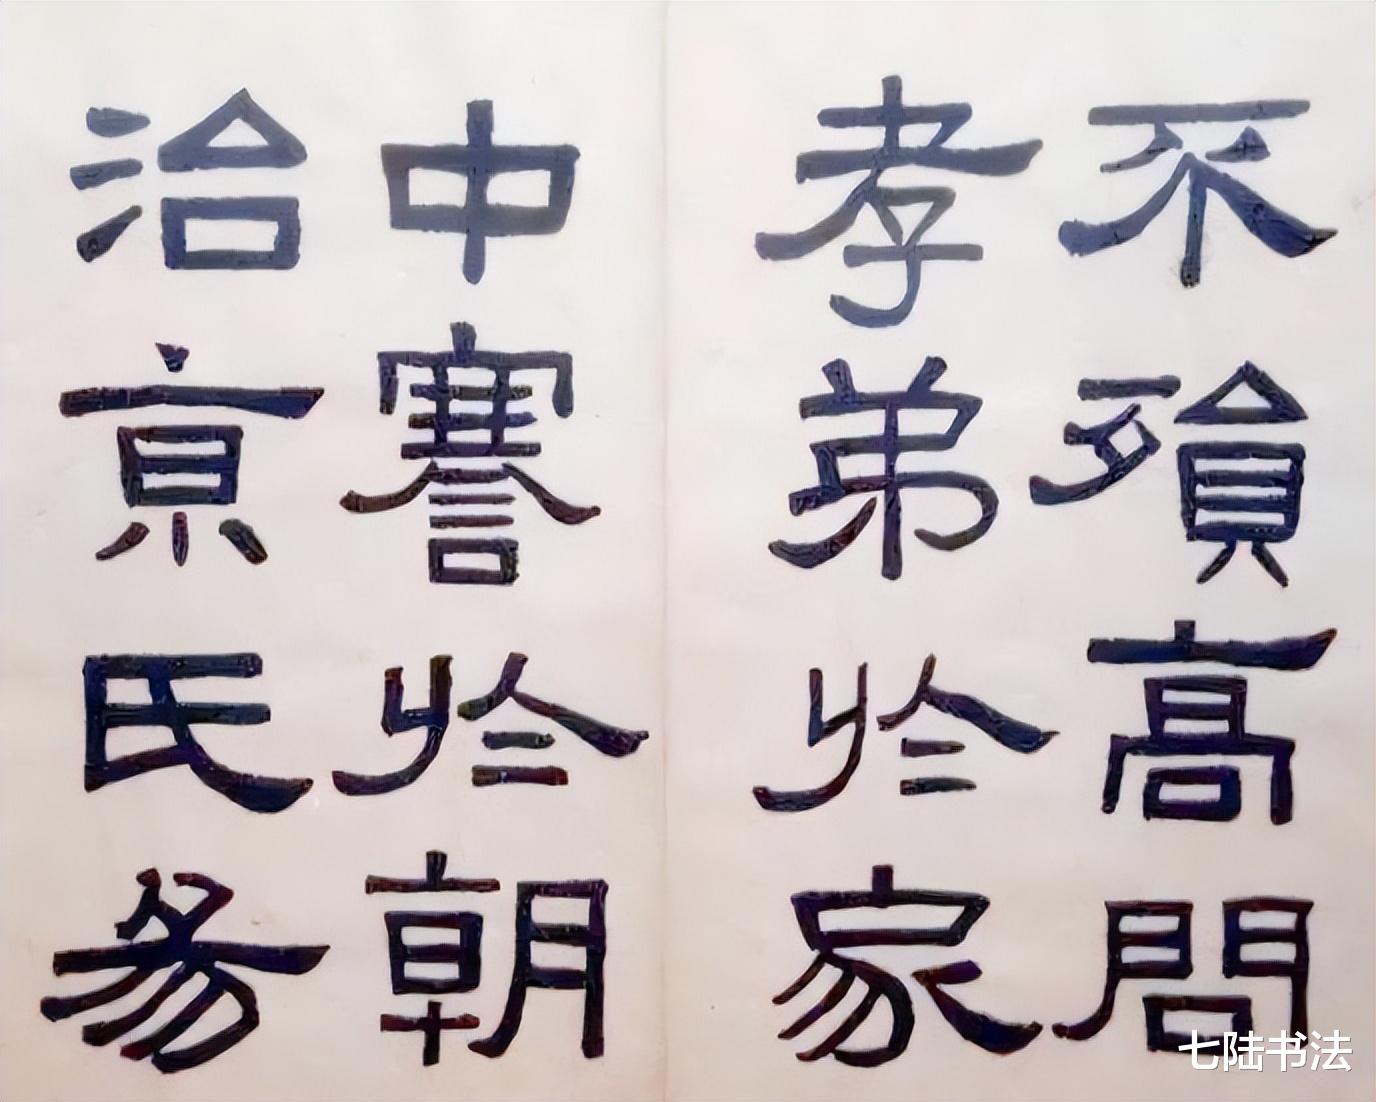 不殞高問
孝弟於家
中謇於朝
治京氏易
七陆书法